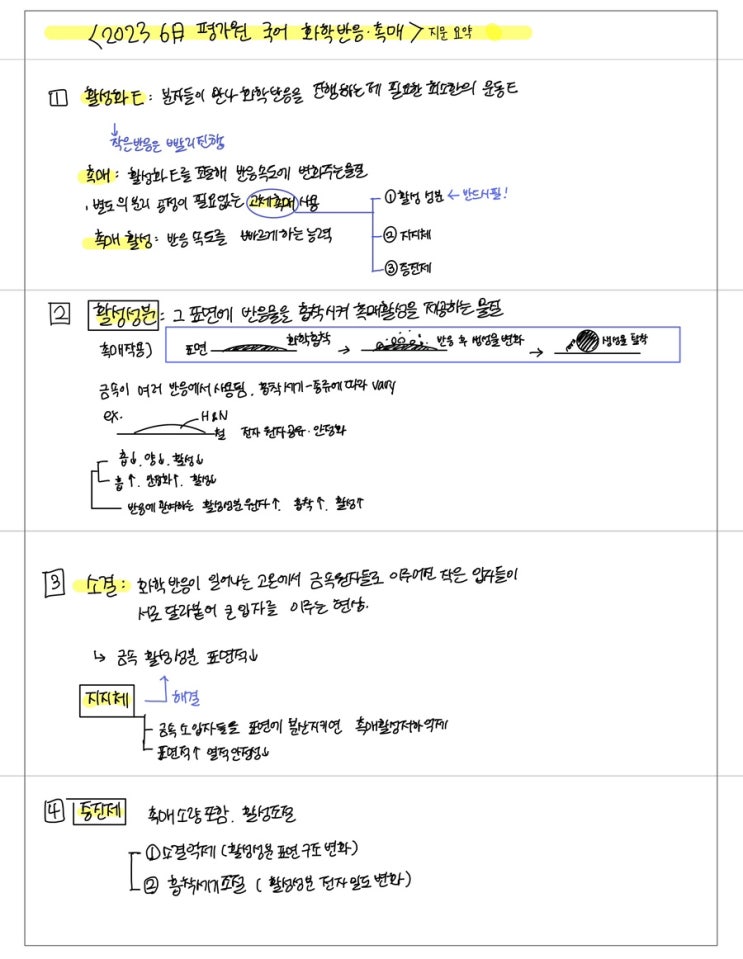 <2023 6月 평가원 국어 화학반응·촉매> 지문 요약
1 활성화 E : 분자들이 만나 화학반응을 진행하는데 필요한 최소한의 운동E
↓작은반응은 빨리진행
촉매 : 활성화 E를 조절해 반응속도에 변화주는물질
· 별도의 분리 공정이 필요없는 고체촉매 사용
①활성 성분 ← 반드시필!
②지지체
③증진제
촉매 활성 : 반응 속도를 빠르게하는 능력
2 활성성분 : 그 표면에 반응물을 흡착시켜 촉매활성을 제공하는 물질
촉매작용) 표면 화학흡착 → 반응 후 생성물변화 → 생성물 탈착
금속이 여러 반응에서 사용됨. 흡착세기-종류에따라 vary
ex. H&N
철 전자 원자공유·안정화
흡↓. 양↓. 활성↓
흡↑. 안정화↑. 활성↓
반응에 관여하는 활성성분 원자↑. 흡착↑. 활성↑
3 소결 : 화학반응이 일어나는 고온에서 금속원자들로 이루어진 작은 입자들이
서로 달라붙어 큰입자를 이루는 현상.
↳ 금속 활성성분 표면적↓
지지체 해결
금속 소입자들을 표면에 분산시키면 촉매활성저하 억제
표면적↑ 열적안정성↓
4 증진제 촉매소량포함. 활성조절
①소결억제 (활성성분 표면 구조 변화)
② 흡착세기조절 ( 활성성분 전자 밀도 변화)